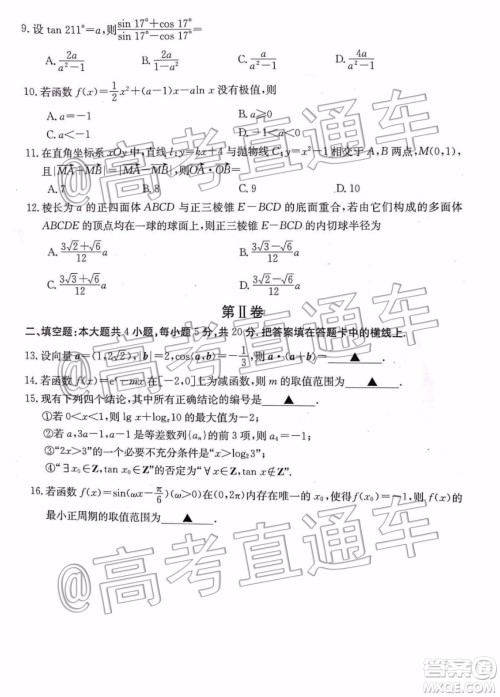 9. 设 tan 211°=a,则(sin 17°+cos 17°)/(sin 17°-cos 17°)=
A. 2a/(a²-1) B. 2a/(1-a²) C. a/(a²-1) D. a/(a²-1)
10. 若函数 f(x)=1/2x²+(a-1)x-aln x 没有极值,则
A. a=-1 B. a≥0
C. a<-1 D. -1<a<0
11. 在直角坐标系 xOy 中,直线 l:y=kx+4 与抛物线 C:y=x²-1 相交于 A,B 两点,M(0,1),
且|MA+MB|=|MA-MB|,则OA·OB=
A. 7 B. 8 C. 9 D. 10
12. 棱长为 a 的正四面体 ABCD 与正三棱锥 E-BCD 的底面重合,若由它们构成的多面体
ABCDE 的顶点均在一球的球面上,则正三棱锥 E-BCD 的内切球半径为
A. (3√2+√6)/12 a B. (3√2+√6)/6 a
C. (3√2-√6)/12 a D. (3√2-√6)/6 a
第Ⅱ卷
二、填空题:本大题共 4 小题,每小题 5 分,共 20 分.把答案填在答题卡中的横线上.
13. 设向量 a=(1,2√2),|b|=2,cos⟨a,b⟩=-1/3,则 a·(a+b)=▲.
14. 若函数 f(x)=eˣ-mx 在[-2,0]上为减函数,则 m 的取值范围为▲.
15. 现有下列四个结论,其中所有正确结论的编号是▲.
①若 0<x<1,则 lg x+logₓ10 的最大值为-2;
②若 a,3a-1,4 是等差数列{aₙ}的前 3 项,则 a₄=
③“x>2”的一个必要不充分条件为“x>log₂3”;
④“∃x₀∈Z,tan x₀∈Z”的否定为“∀x∈Z,tan x∉Z”.
16. 若函数 f(x)=sin(ωx-π/6)(ω>0)在(0,2π)内存在唯一的 x₀,使得 f(x₀)=-1,则 f(x)的
最小正周期的取值范围为▲.
@高考直通车
@高考直通车
答案圈
MXQE.COM